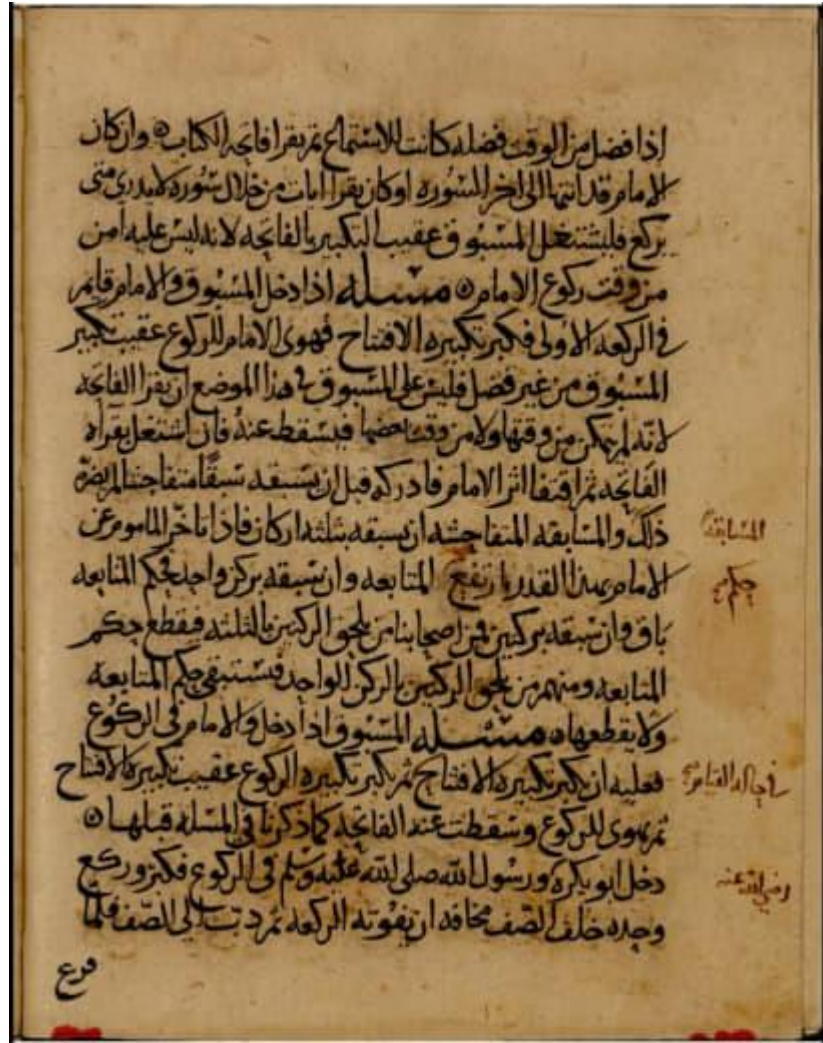 اذا فضل من الوقت فضله كانت للاستماع ثم يقرا فاتحه الكتاب ه وان كان
الامام قد انتها الى اخر السوره او كان يقرا ايات من خلال سوره لا يدري متى
يركع فليشتغل المسبوق عقيب التكبير بالفاتحه لانه ليس عليه امن
من وقت ركوع الامام ه مسله اذا دخل المسبوق والامام قايم
في الركعه الاولى فكبر تكبيره الافتتاح فهوى الامام للركوع عقيب تكبير
المسبوق من غير فصل فليس على المسبوق في هذا الموضع ان يقرا الفاتحه
لانه لم يتمكن من وقتها ولا من وقت بعضها فيسقط عنه فان اشتغل بقراه
الفاتحه ثم اقتفا اثر الامام فادركه قبل ان يسبقه سبقا متفاحشا لم يضره
ذلك والمسابقه المتفاحشه ان يسبقه بثلثه اركان فاذا تاخر الماموم عن
المسابقه
الامام بهذا القدر ارتفع المتابعه وان سبقه بركن واحد فحكم المتابعه
حكم
باق وان سبقه بركنين فمن اصحابنا من يلحق الركنين بالثلثه فيقطع حكم
المتابعه ومنهم من يلحق الركنين بالركن الواحد فيستبقي حكم المتابعه
ولا يقطعها ه مسله المسبوق اذا دخل والامام في الركوع
فعليه ان يكبر تكبيره الافتتاح ثم يكبر تكبيره الركوع عقيب تكبيره الافتتاح
في حاله القيام
ثم يهوي للركوع وسقطت عنه الفاتحه كما ذكرنا في المسله قبلها ه
دخل ابو بكره ورسول الله صلى الله عليه وسلم في الركوع فكبر وركع
رضي الله عنه
وحده خلف الصف مخافه ان يفوته الركعه ثم دب الى الصف فلما
فرغ